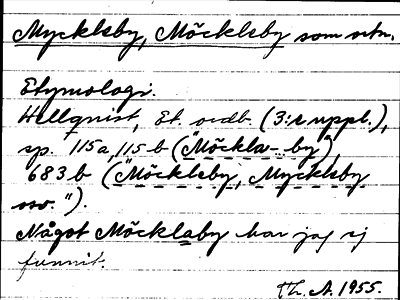 Mycklsby, Möcklsby som ortn.
Etymologi.
Hellquist, Et. ordb. (3:e uppl.),
sp. 115a, 115b ("Möckla-by"),
683b ("Möcklsby, Mycklsby
osv.").
Något Möcklaby har jag ej
funnit.
Th. A. 1955.